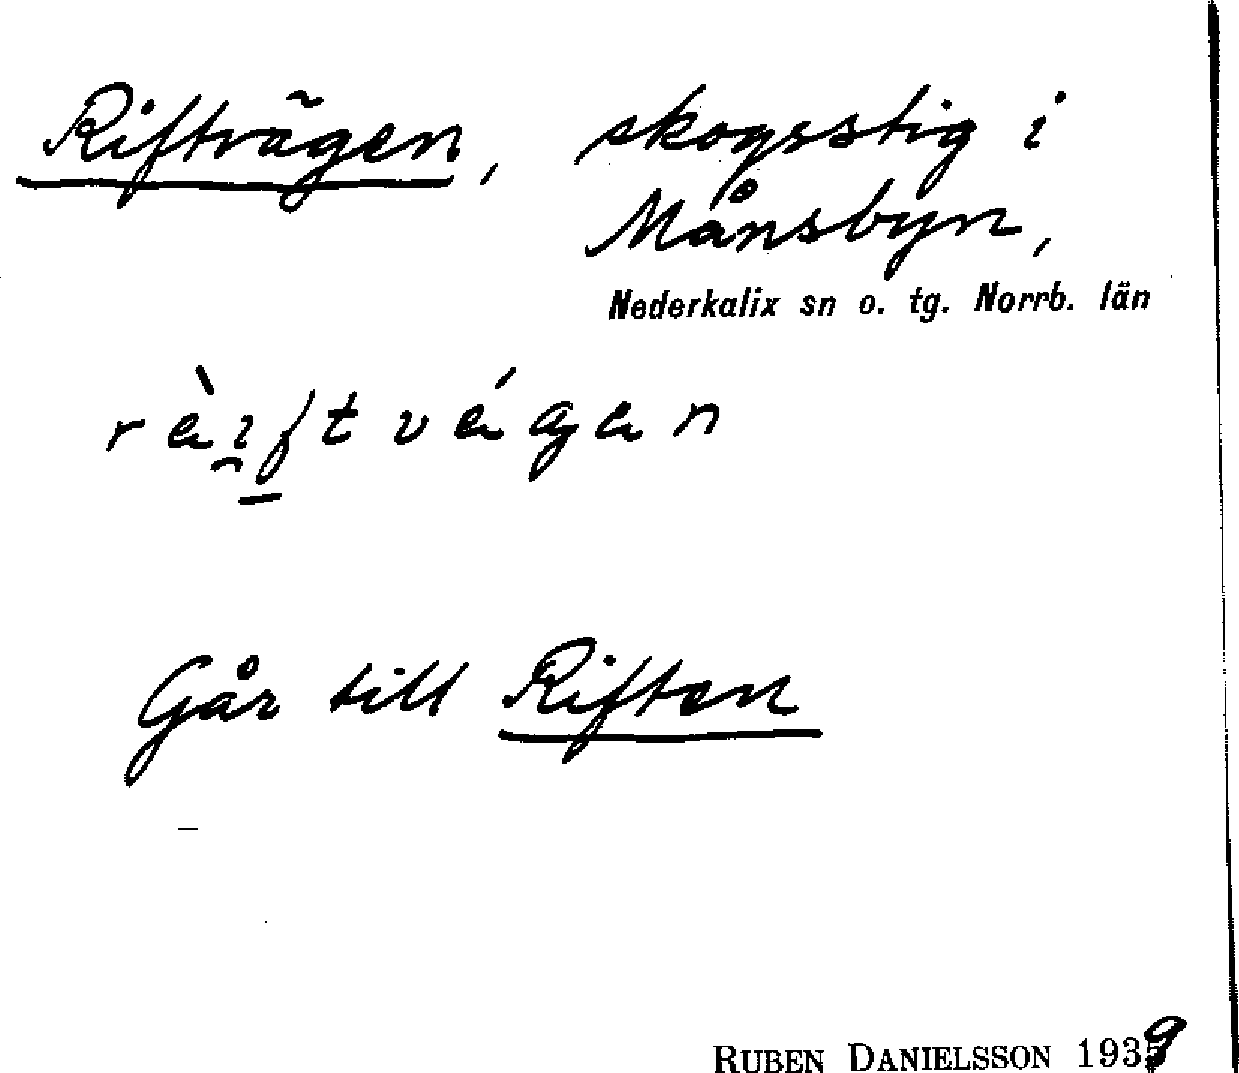 Riftvägen, skogsstig i
Månsbyn,
Nederkalix sn o. tg. Norrb. län
rèi̯ftvégen
Går till Riften
RUBEN DANIELSSON 1939